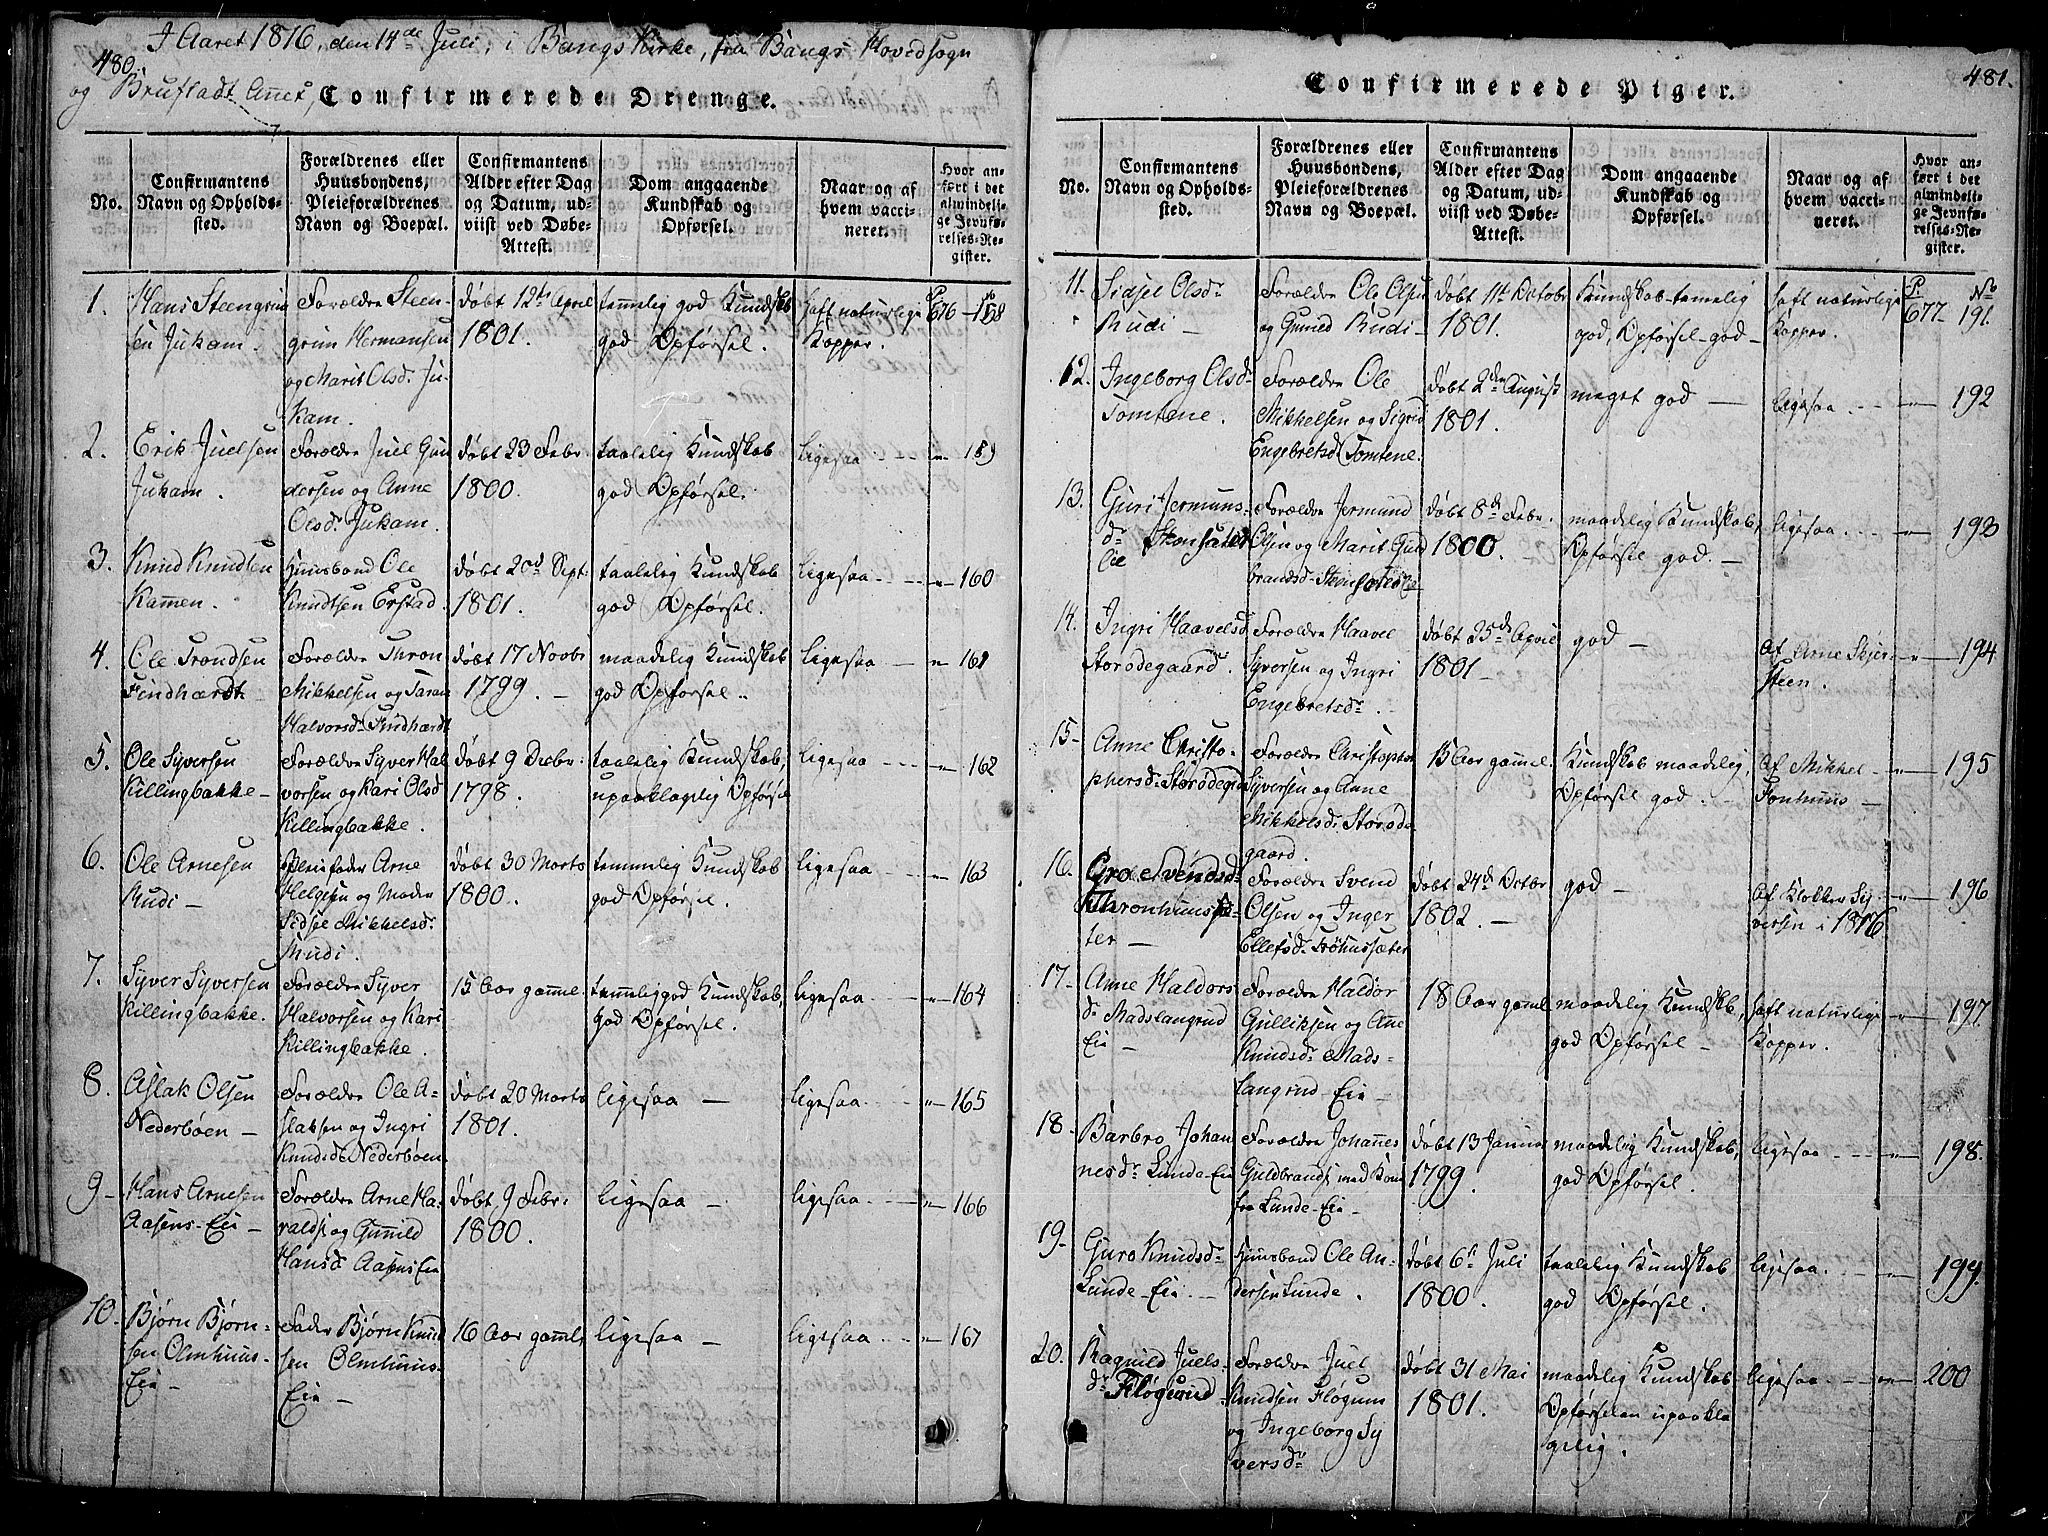 480.
I Aaret 1816, den 14de Juli, i Bangs Kirke, fra Bangs Hovedsogn
og Brustadt Annex,
Confirmerede Drenge.
No.
Confirmantens
Navn og Opholds-
sted.
Forældrenes eller
Huusbondens,
Pleieforældrenes
Navn og Boepæl.
Confirmantens
Alder efter Dag
og Datum, ud-
viist ved Døbe-
Attest.
Dom angaaende
Kundskab og
Opførsel.
Naar og af
hvem vacci-
neret.
Hvor an-
ført i det
almindeli-
ge Jevnfø-
relses-Re-
gister.
1.
Hans Steengrim
sen Jukam.
Forældre Steen-
grim Hermansen
og Marit Olsdr. Ju-
kam.
døbt 12te April
1801.
temmelig god Kundskab
god Opførsel.
haft naturlige
Kopper.
P. No
676 - 158
2.
Erik Juelsen
Jukam.
Forældre Juel Gun
dersen og Anne
Olsdr. Jukam.
døbt 23 Febr
1800.
taalelig Kundskab
god Opførsel.
ligesaa
" 159
3.
Knud Knudsen
Kamen.
Huusbond Ole
Knudtsen Erstad.
døbt 20d Sept:
1801.
taalelig Kundskab
god Opførsel.
ligesaa
" 160
4.
Ole Trondsen
Findhærdt
Forældre Thron
Mikkelsen og Taran
Halvorsdr. Findhærdt
døbt 17 Novbr
1799. -
maadelig Kundskab
god Opførsel..
ligesaa
" 161
5.
Ole Syversen
Killingbakke -
Forældre Syver Hal
vorsen og Kari Olsd
Killingbakke.
døbt 9 Decbr:
1798.
taalelig Kundskab,
upaaklagelig Opførsel
ligesaa
" 162
6.
Ole Arnesen
Rudi -
Pleiefader Arne
Helgesen og Moder
Sidsel Mikkelsdr.
Rudi.
døbt 30 Marts
1800.
temmelig Kundskab
god Opførsel.
ligesaa
" 163
7.
Syver Syversen
Killingbakke.
Forældre Syver
Halvorsen og Kari
Killingbakke.
15 Aar gammel
temmelig god Kundskab,
god Opførsel.
ligesaa
" 164
8.
Aslak Olsen
Nederbøen -
Forældre Ole A-
slaksen og Ingri
Knudsd. Nederbøen.
døbt 20 Marts
1801.
ligesaa -
ligesaa
" 165
9 -
Hans Arnesen
Aasens-Eie -
Forældre Arne Ha-
raldsen og Gunild
Hansd. Aasens Eie
døbt, 9 Febr:
1800.
ligesaa -
ligesaa
" 166
10.
Bjørn Bjørn-
sen Olmhuus-
Eie -
Fader Bjørn Knud
sen Olmhuus-
Eie -
16 Aar gaml,
ligesaa -
ligesaa
" 167
481.
Confirmerede Piger.
No.
Confirmantens
Navn og Opholds-
sted.
Forældrenes eller
Huusbondens,
Pleieforældrenes
Navn og Boepæl.
Confirmantens
Alder efter Dag
og Datum, ud-
viist ved Døbe-
Attest.
Dom angaaende
Kundskab og
Opførsel.
Naar og af
hvem vacci-
neret.
Hvor an-
ført i det
almindeli-
ge Jevnfø-
relses-Re-
gister.
11.
Sidsel Olsdr.
Rudi -
Forældre Ole Olsen
og Gunild Rudi -
døbt 11t Octobr
1801.
Kundskab temelig
god, Opførsel god -
haft naturlige
Kopper.
P. No
677 - 191.
12.
Ingeborg Olsd.
Tomtene.
Forældre Ole
Mikkelsen og Sigrid
Engebretsd. Tomtene.
døbt 2den August
1801.
meget god -
ligesaa
" 192
13.
Guri Jermuns-
dr. Stensæter
Eie
Forældre Jermund
Olsen og Marit Guld
brandsd. Stensæter Eie
døbt 8de Febr.
1800. -
maadelig Kundskab,
Opførsel god. -
ligesaa
" 193
14.
Ingri Haavelsd.
Storødegaard.
Forældre Haavel
Syversen og Ingri
Engebretsdr.
døbt 25de April
1801 -
god -
Af Arne Skjer-
steen.
" 194
15 -
Anne Christo-
phersd. Storødegrd
Forældre Christopher
Syversen og Anne
Mikkelsd. Storøde
gaard.
15 Aar gammel
Kundskab maadelig,
Opførsel god. -
Af Mikkel
Fonhuus -
" 195
16.
Gro Svendsd.
Thronhuussæ-
ter -
Forældre Svend
Olsen og Inger
Ellefsd. Trøhussæter
døbt 24de Octbr
1802. -
god -
Af Klokker Sy-
versen i 1816
" 196
17 -
Anne Haldors
dr. Madslangrud
Eie -
Forældre Haldor
Gulliksen og Anne
Knudsd. Mads-
langrud-Eie -
18 Aar gaml
maadelig Kundskab,
god Opførsel -
haft naturlige
Kopper.
" 197.
18.
Barbro Johan
nesdr. Lunde-Eie
Forældre Johannes
Guldbrands. med Kone
fra Lunde-Eie -
døbt 13 Januar
1799.
maadelig Kundskab,
god Opførsel.
ligesaa
" 198.
19 -
Guro Knudsdr.
Lunde-Eie. -
Huusbond Ole An-
dersen Lunde.
døbt 6te Juli
1800.
taalelig Kundskab
god Opførsel.
ligesaa
" 199.
20.
Ragnild Juels-
dr. Fløgerud
Forældre Juel
Knudsen Fløgerud
og Ingeborg Sy
versdr.
døbt 31 Mai
1801.
maadelig Kundskab
Opførselen upaakla
gelig.
ligesaa
" 200